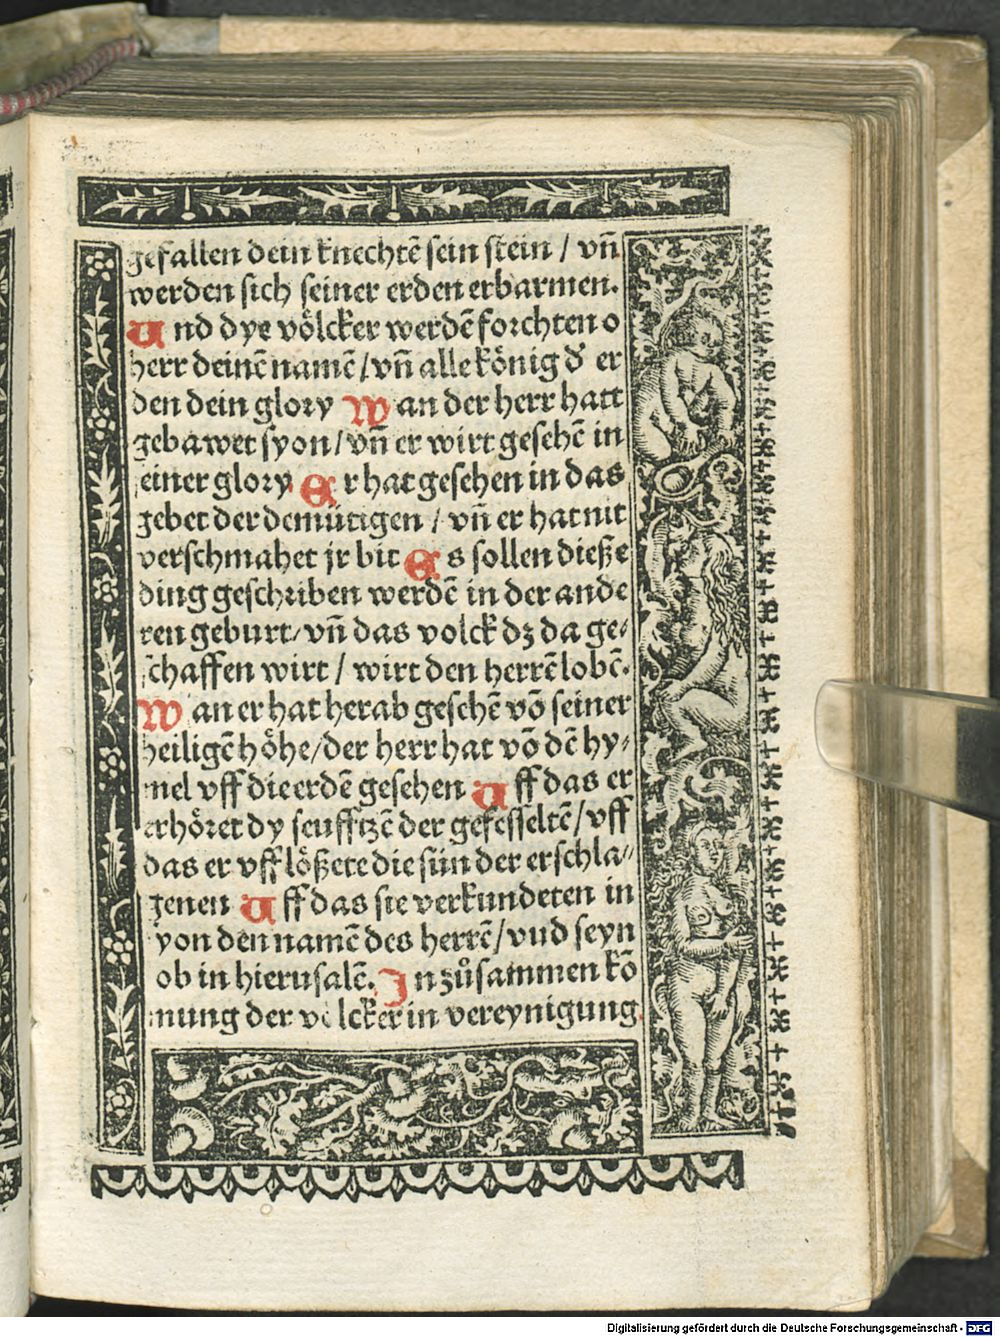 gefallen dein knechtē sein stein / vñ
werden sich seiner erden erbarmen.
Und dye völcker werdē forchten o
herr deinē namē / vñ alle König đ er
den dein glory Wan der herr hatt
gebawet syon / vñ er wirt gesehē in
seiner glory Er hat gesehen in das
gebet der demütigen / vñ er hat nit
verschmahet jr bit Es sollen dieße
ding geschriben werdē in der ande
ren geburt / vñ das volck dz da ge⸗
schaffen wirt / wirt den herrē lobē.
Wan er hat herab gesehē vō seiner
heiligē höhe / der herr hat vō dē hy⸗
mel vff die erdē gesehen Uff das er
erhöret dy seufftzē der gefesseltē / vff
das er vff lößete die sün der erschla⸗
genen Uff das sie verkundeten in
syon den namē des herrē / vnd seyn
lob in hierusalē. In zůsammen kō
mung der völcker in vereynigung
Digitalisierung gefördert durch die Deutsche Forschungsgemeinschaft - DFG